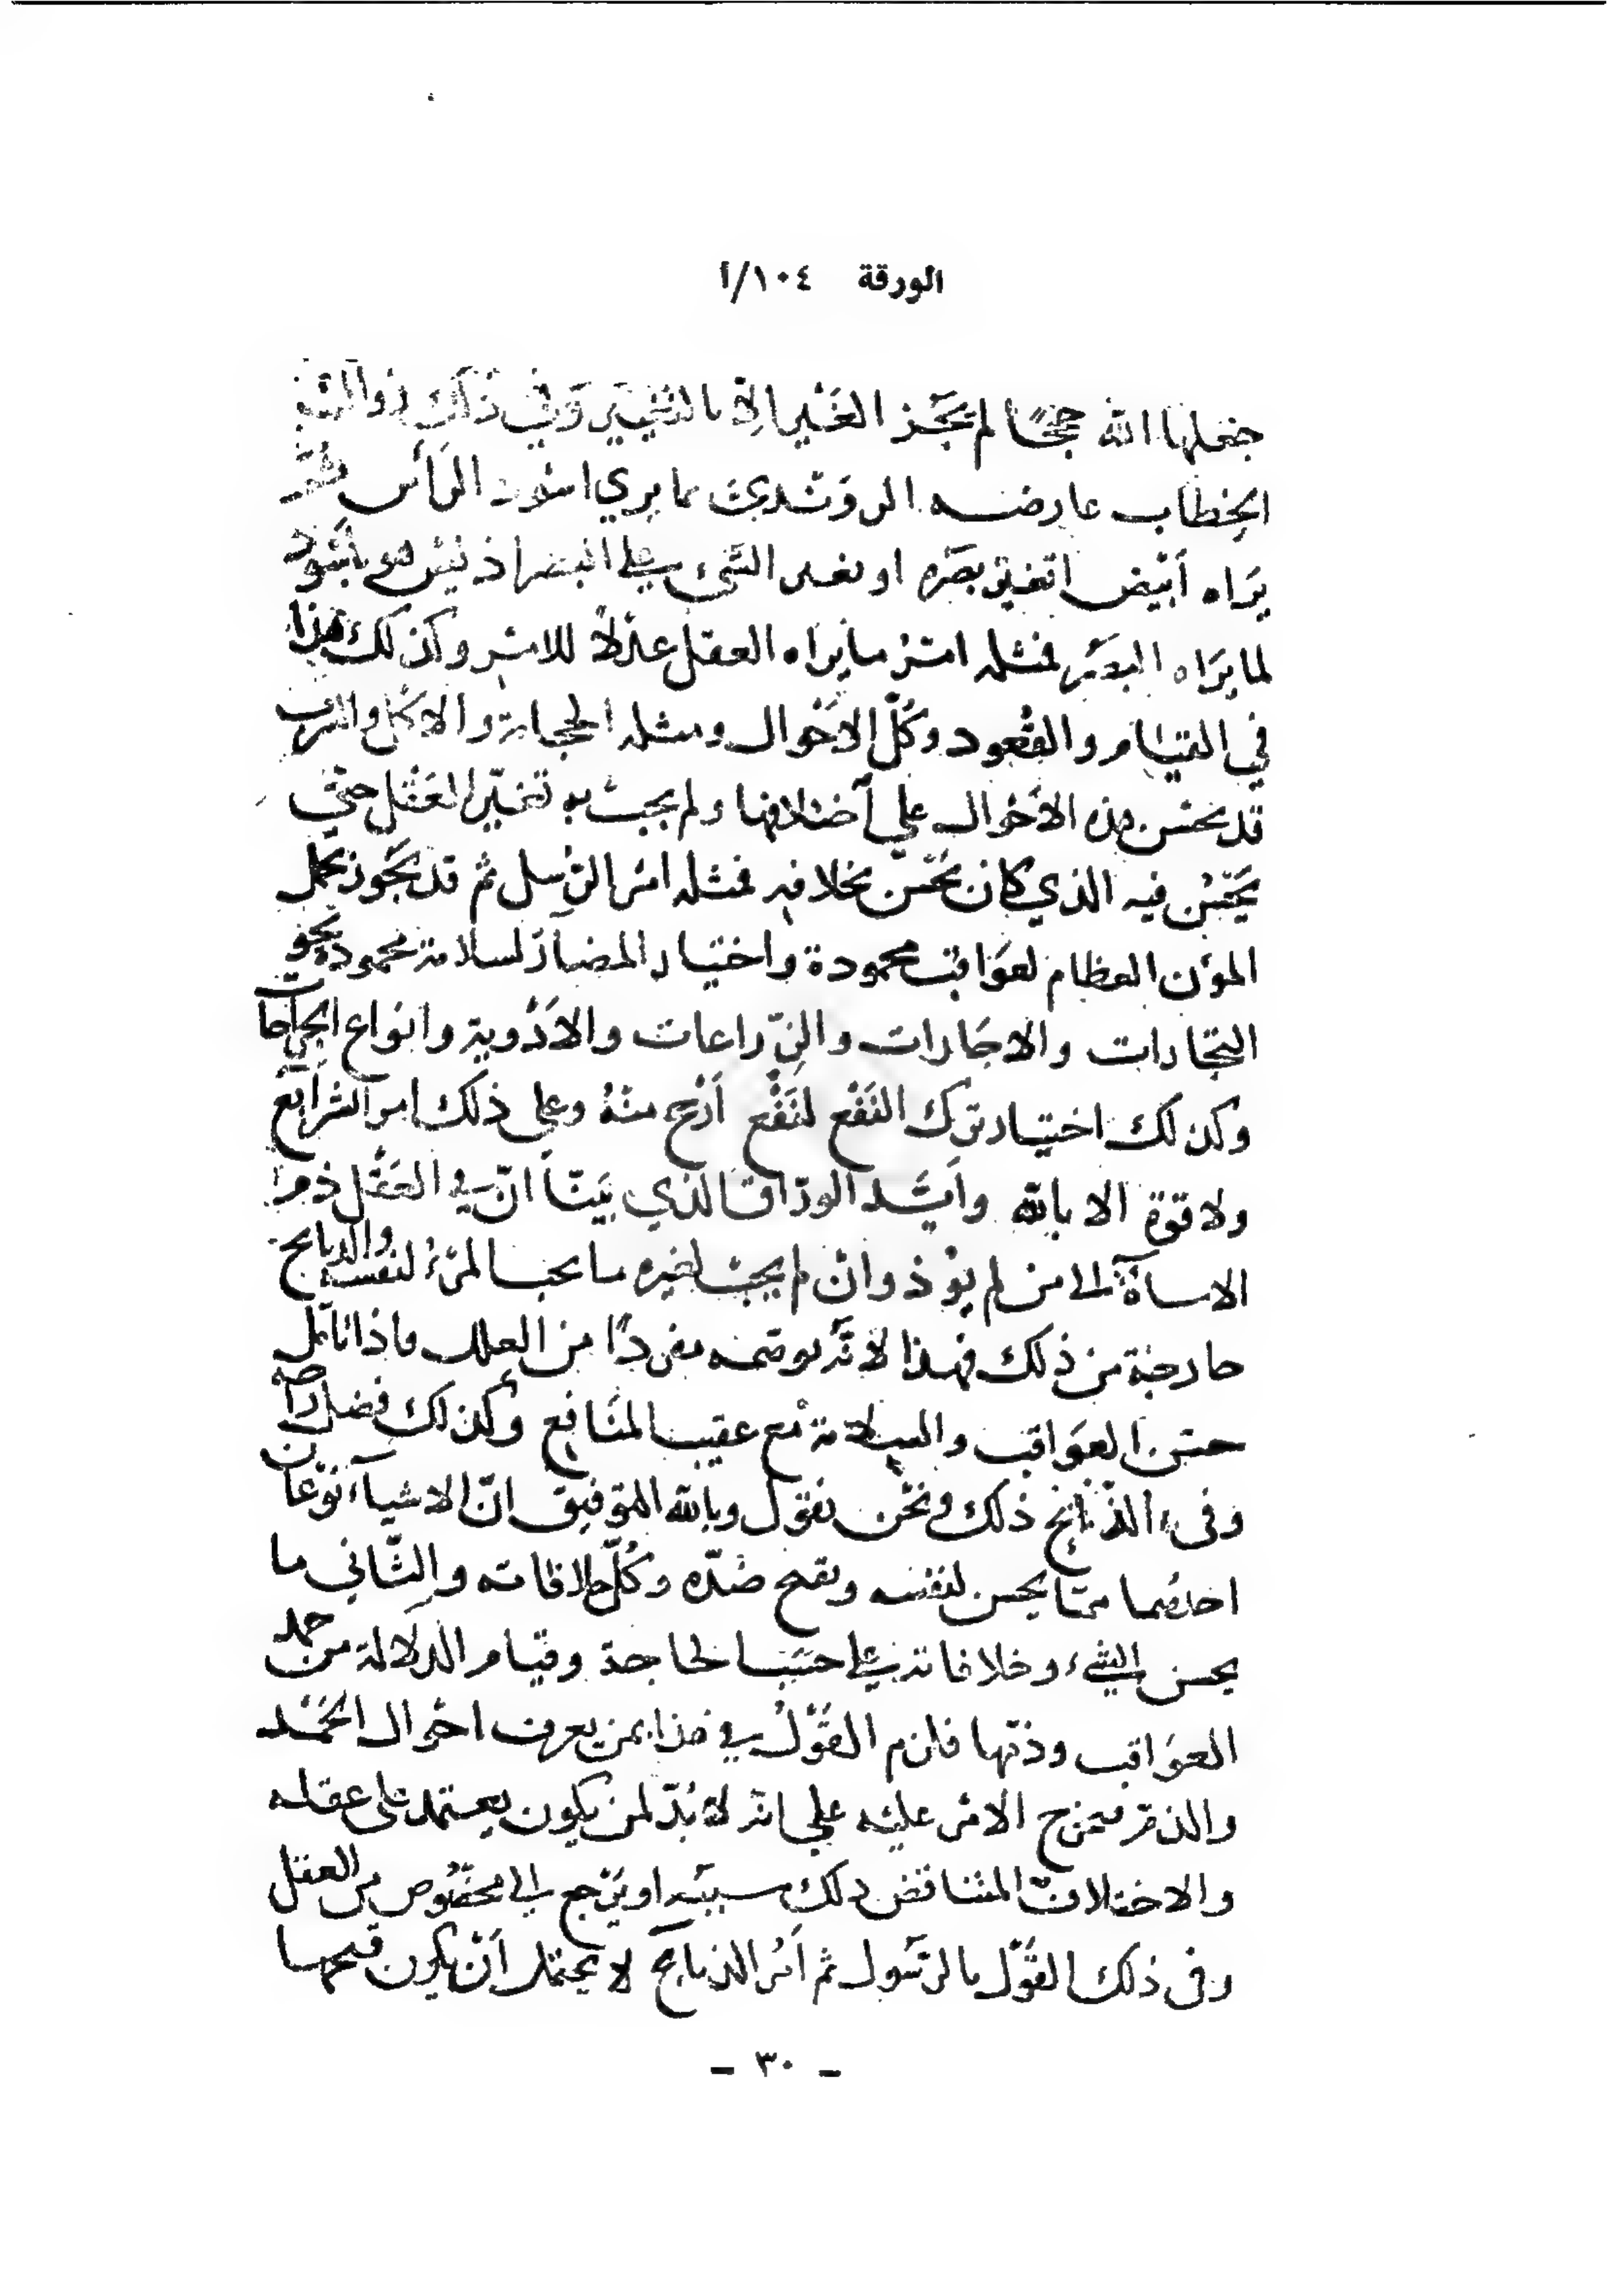 الورقة ١٠٤/أ
جعلها الله حججًا لم يجز الغير إلا بالتغيير وفي ذلك زوال
الخطاب عارضه الروندي بما يرى اسود الرأس ثمّ
يراه أبيض اتغيّر بصره او الشيء على البصر اذ ليس هو بأسود
لما يراه البصر فمثله امر ما يراه العقل عدلاً للامر وكذلك هذا
في القيام والقعود وكلّ الاحوال ومثله الحجامة والاكل والشرب
قد يحسن هذه الاحوال على اختلافها ولم يجب به تغيّر العقل حتى
يحسن فيه الذي كان يحسن بخلافه فمثله امر الرسل ثم قد يجوز تحمل
المؤن العظام لعواقب محمودة واختيار المضار لسلامة محمودة نحو
التجارات والاجارات والزراعات والأدوية وانواع الجراحات
وكذلك اختيار ترك النَفع لنَفع أرجح منه وعلى ذلك امر الشرايع
ولا قوة الا بالله الورّاق الذي بيّنا انّ في العقل ذمّ
الاساءة الى من لم يؤذ وان لم يجب لغيره ما يحب المرء لنفسه والذبايح
خارجة من ذلك فهذا لأنه مفردًا من العلل فاذا تأمل
حسن العواقب والسلامة مع عقيب المنافع وكذلك
وفى الذبايح ذلك ونحن نقول وبالله التوفيق انّ الاشياء نوعان
احدهما ممّا يحسن لنفسه ويقبح ضدّه وكلّ ملاقاته والثّاني ما
يحسن الشيء وخلافاته على حسب الحاجة وقيام الدلالة من حمد
العواقب وذمّها فلزم القول في هذا بمن يعرف احوال الحمد
والذم الامر عليه على انه لا بُدّ لمن يكون يعتمد على عقله
والاختلاف المتناقض ذلك سببه او يرجع الى مخصوص من العقل
وفى ذلك القول بالرسول ثم أمر الذبايح لا يحتمل أن يكون قبحها
– ٣٠ –